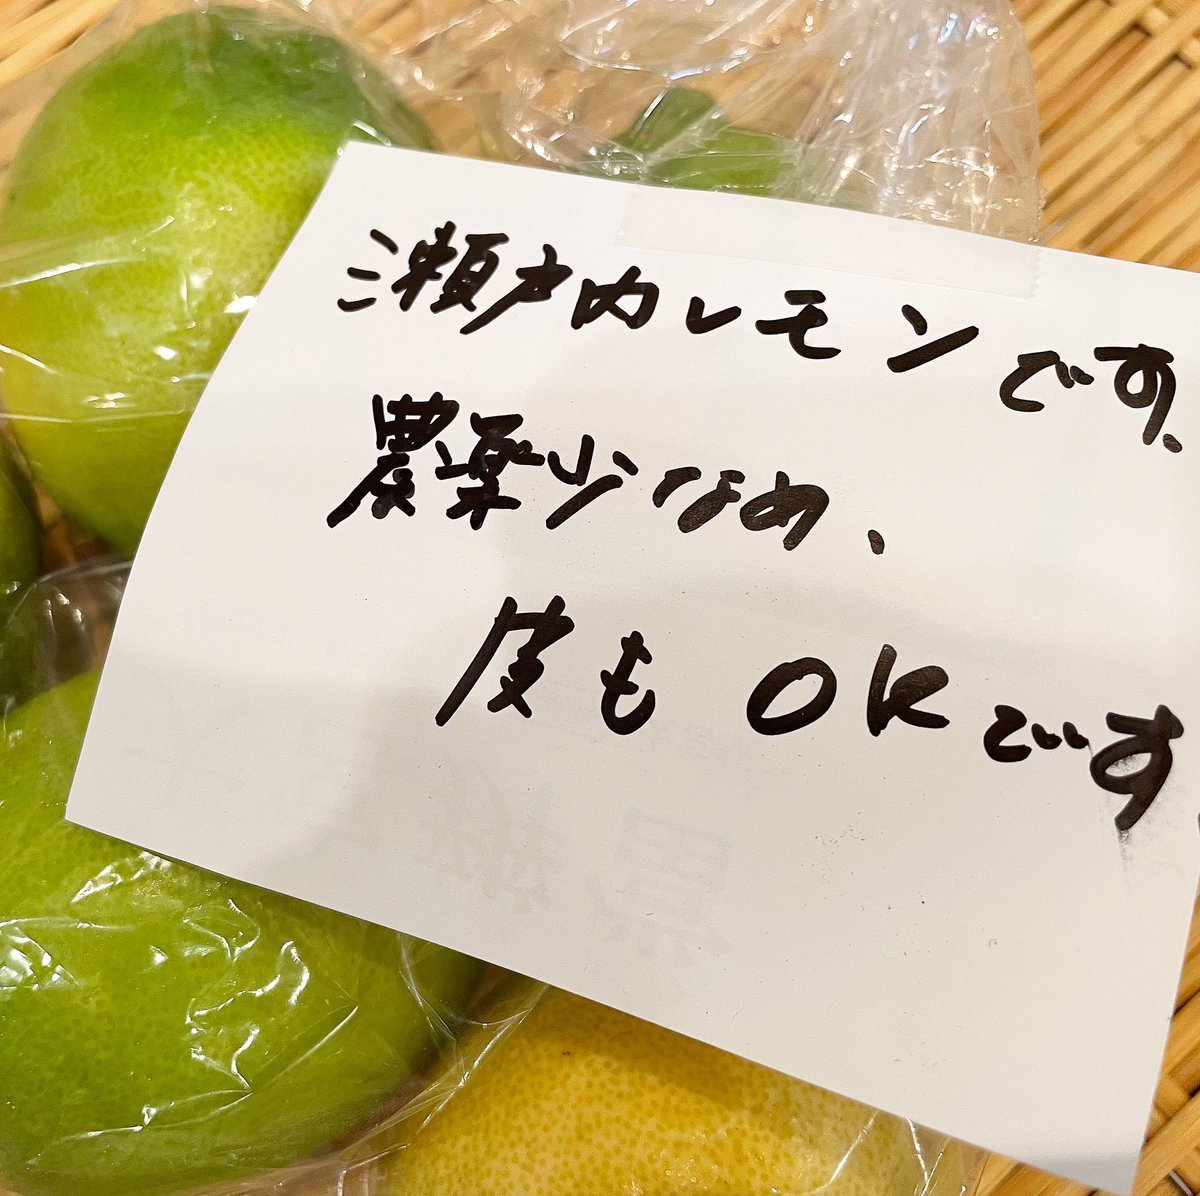 瀬戸内レモンです、
農薬少なめ、
皮もOKです